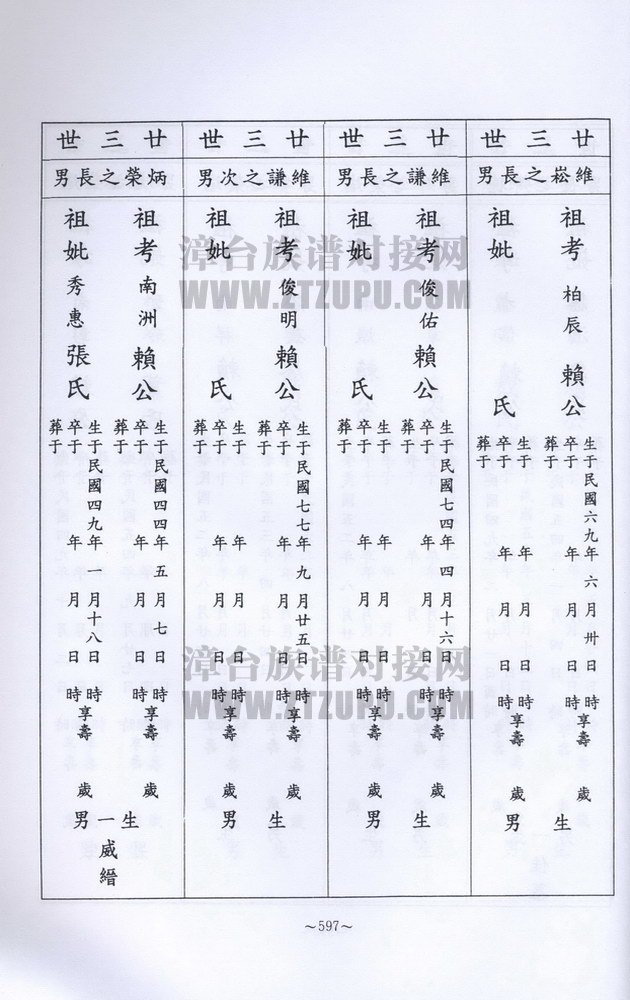 廿三世
維崧之長男
祖考柏辰賴公
生于民國六九年六月卅日時
卒于年月日時享壽歲
葬于
祖妣氏
生于年月日時
卒于年月日時享壽歲
葬于
生男
廿三世
維謙之長男
祖考俊佑賴公
生于民國七四年四月十六日時
卒于年月日時享壽歲
葬于
祖妣氏
生于年月日時
卒于年月日時享壽歲
葬于
生男
廿三世
維謙之次男
祖考俊明賴公
生于民國七七年九月廿五日時
卒于年月日時享壽歲
葬于
祖妣氏
生于年月日時
卒于年月日時享壽歲
葬于
生男
廿三世
炳榮之長男
祖考南洲賴公
生于民國四四年五月七日時
卒于年月日時享壽歲
葬于
祖妣秀惠張氏
生于民國四九年一月十八日時
卒于年月日時享壽歲
葬于
生一男
威縉
～597～
漳台族谱对接网
WWW.ZTZUPU.COM
漳台族谱对接网
WWW.ZTZUPU.COM